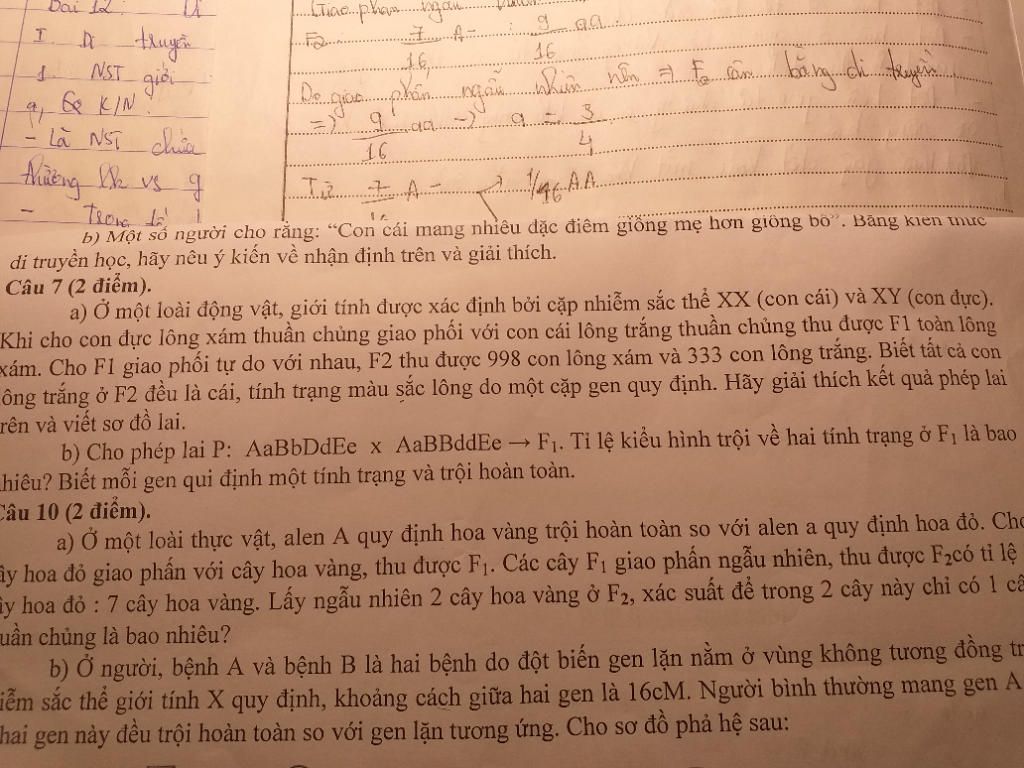 Bài 12
I Di truyền
1 NST giới
a, Gx K/N
- Là NST chứa
thường # vs g
- Trong tb 1
Giao phấn ngẫu nhiên
F2: 7/16 A- : 9/16 aa
Do giao phấn ngẫu nhiên nên => F2 cân bằng di truyền
=> 9/16 aa -> a = 3/4
Từ 7/16 A- -> 1/16 AA
b) Một số người cho rằng: “Con cái mang nhiều đặc điểm giống mẹ hơn giống bố”. Bằng kiến thức
di truyền học, hãy nêu ý kiến về nhận định trên và giải thích.
Câu 7 (2 điểm).
a) Ở một loài động vật, giới tính được xác định bởi cặp nhiễm sắc thể XX (con cái) và XY (con đực).
Khi cho con đực lông xám thuần chủng giao phối với con cái lông trắng thuần chủng thu được F1 toàn lông
xám. Cho F1 giao phối tự do với nhau, F2 thu được 998 con lông xám và 333 con lông trắng. Biết tất cả con
lông trắng ở F2 đều là cái, tính trạng màu sắc lông do một cặp gen quy định. Hãy giải thích kết quả phép lai
rên và viết sơ đồ lai.
b) Cho phép lai P: AaBbDdEe x AaBBddEe → F1. Tỉ lệ kiểu hình trội về hai tính trạng ở F1 là bao
nhiêu? Biết mỗi gen qui định một tính trạng và trội hoàn toàn.
Câu 10 (2 điểm).
a) Ở một loài thực vật, alen A quy định hoa vàng trội hoàn toàn so với alen a quy định hoa đỏ. Cho
ây hoa đỏ giao phấn với cây hoa vàng, thu được F1. Các cây F1 giao phấn ngẫu nhiên, thu được F2có tỉ lệ
ây hoa đỏ : 7 cây hoa vàng. Lấy ngẫu nhiên 2 cây hoa vàng ở F2, xác suất để trong 2 cây này chỉ có 1 câ
uần chủng là bao nhiêu?
b) Ở người, bệnh A và bệnh B là hai bệnh do đột biến gen lặn nằm ở vùng không tương đồng tr
iễm sắc thể giới tính X quy định, khoảng cách giữa hai gen là 16cM. Người bình thường mang gen A
hai gen này đều trội hoàn toàn so với gen lặn tương ứng. Cho sơ đồ phả hệ sau: